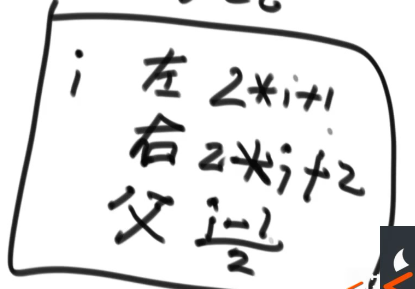 i 左 2*i+1
右 2*i+2
父 i-1/2